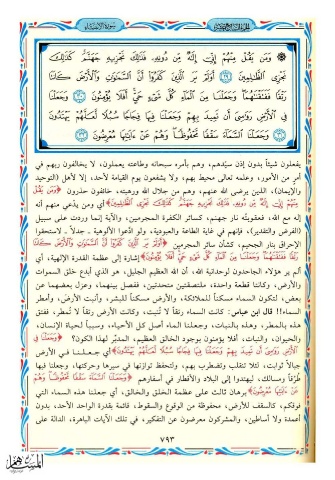 الجزء السابع عشر
سورة الأنبياء
۞ وَمَن يَقُلْ مِنْهُمْ إِنِّي إِلَٰهٌ مِّن دُونِهِ فَذَٰلِكَ نَجْزِيهِ جَهَنَّمَ كَذَٰلِكَ
نَجْزِي الظَّالِمِينَ ٢٩ أَوَلَمْ يَرَ الَّذِينَ كَفَرُوا أَنَّ السَّمَاوَاتِ وَالْأَرْضَ كَانَتَا
رَتْقًا فَفَتَقْنَاهُمَا وَجَعَلْنَا مِنَ الْمَاءِ كُلَّ شَيْءٍ حَيٍّ أَفَلَا يُؤْمِنُونَ ٣٠ وَجَعَلْنَا
فِي الْأَرْضِ رَوَاسِيَ أَن تَمِيدَ بِهِمْ وَجَعَلْنَا فِيهَا فِجَاجًا سُبُلًا لَّعَلَّهُمْ يَهْتَدُونَ
٣١ وَجَعَلْنَا السَّمَاءَ سَقْفًا مَّحْفُوظًا وَهُمْ عَنْ آيَاتِهَا مُعْرِضُونَ ٣٢
يفعلون شيئاً بدون إذن سيّدهم، وهم بأمره سبحانه وطاعته يعملون، لا يخالفون ربهم في
أمر من الأمور، وعلمه تعالى محيط بهم، ولا يشفعون يوم القيامة لأحد، إلا لأهل (التوحيد
والإيمان)، اللذين يرضى الله عنهم، وهم من جلال الله ورهبته، خائفون حذرون ﴿وَمَن يَقُلْ
مِنْهُمْ إِنِّي إِلَٰهٌ مِّن دُونِهِ فَذَٰلِكَ نَجْزِيهِ جَهَنَّمَ كَذَٰلِكَ نَجْزِي الظَّالِمِينَ﴾ أي ومن يدّعي منهم أنه
إله مع الله، فعقوبته نار جهنم، كسائر الكفرة المجرمين، والآية إنما وردت على سبيل
(الفرض والتقدير)، فإنهم في غاية الطاعة والعبودية، ولو ادّعوا الألوهية ـ جدلاً ـ لاستحقوا
الإحراق بنار الجحيم، كشأن سائر المجرمين ﴿أَوَلَمْ يَرَ الَّذِينَ كَفَرُوا أَنَّ السَّمَاوَاتِ وَالْأَرْضَ كَانَتَا
رَتْقًا فَفَتَقْنَاهُمَا وَجَعَلْنَا مِنَ الْمَاءِ كُلَّ شَيْءٍ حَيٍّ أَفَلَا يُؤْمِنُونَ﴾ إشارة إلى عظمة القدرة الإلهية، أي
ألم ير هؤلاء الجاحدون لوحدانية الله، أن الله العظيم الجليل، هو الذي أبدع خلق السموات
والأرض، وكانتا قطعة واحدة، ملتصقتين متحدتين، ففصل بينهما، وعزل بعضهما عن
بعض، لتكون السماء مسكناً للملائكة، والأرض مسكناً للبشر، وأنبت الأرض، وأمطر
السماء!! قال ابن عباس: كانت السماء رتقاً لا تُنبت، وكانت الأرض رتقاً لا تُمطر، ففتق
هذه بالمطر، وهذه بالنبات، وجعلنا الماء أصل كل الأحياء، وسبباً لحياة الإنسان،
والحيوان، والنبات، أفلا يؤمنون بوجود الخالق العظيم، المدبّر لهذا الكون؟ ﴿وَجَعَلْنَا فِي
الْأَرْضِ رَوَاسِيَ أَن تَمِيدَ بِهِمْ وَجَعَلْنَا فِيهَا فِجَاجًا سُبُلًا لَّعَلَّهُمْ يَهْتَدُونَ﴾ أي جعلنا في الأرض
جبالاً ثوابت، لئلا تتقلب وتضطرب بهم، ولتحفظ توازنها في سيرها وحركتها، وجعلنا فيها
طُرُقاً ومسالك، ليهتدوا إلى البلاد والأقطار في أسفارهم ﴿وَجَعَلْنَا السَّمَاءَ سَقْفًا مَّحْفُوظًا وَهُمْ
عَنْ آيَاتِهَا مُعْرِضُونَ﴾ برهان ثالث على عظمة الخلق والخالق، أي جعلنا هذه السماء التي
فوقكم، كالسقف للأرض، محفوظة من الوقوع والسقوط، قائمة بقدرة الواحد الأحد، بدون
أعمدة ولا أساطين، والمشركون معرضون عن التفكير، في تلك الآيات الباهرة، الدالة على
٧٩٣